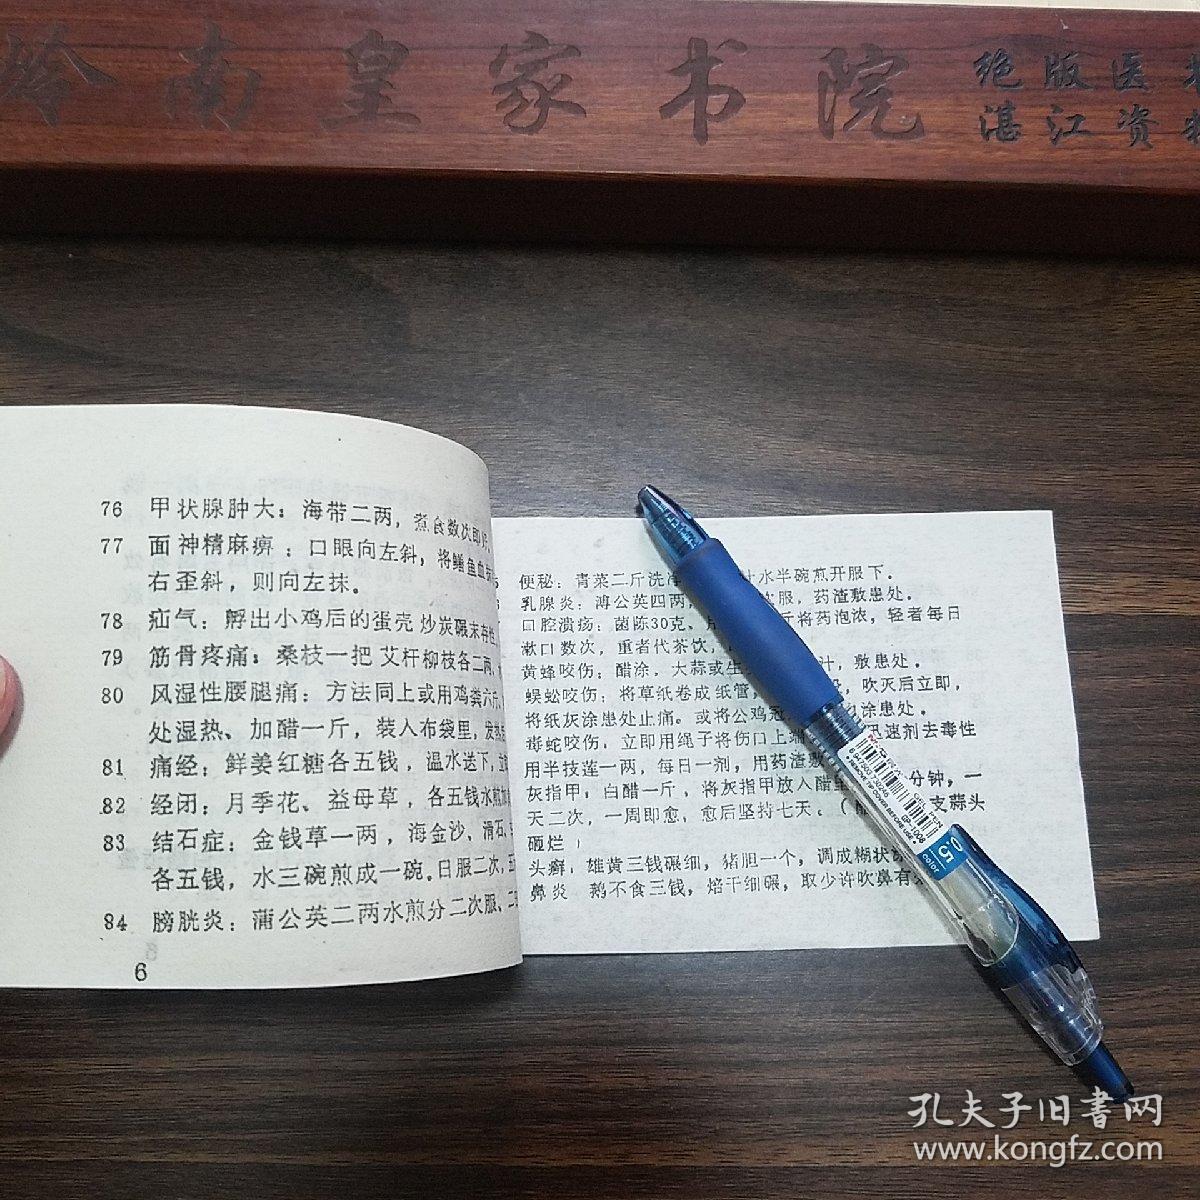 岭南皇家书院
绝版医
湛江资料
76 甲状腺肿大：海带二两，煮食数次即好
77 面神精麻痹：口眼向左斜，将鳝鱼血
右歪斜，则向左抹。
78 疝气：孵出小鸡后的蛋壳炒炭碾末存性
79 筋骨疼痛：桑枝一把艾杆柳枝各二两，
80 风湿性腰腿痛：方法同上或用鸡粪六斤，
处湿热、加醋一斤，装入布袋里，发热
81 痛经：鲜姜红糖各五钱，温水送下，
82 经闭：月季花、益母草，各五钱水煎
83 结石症：金钱草一两，海金沙、滑石、
各五钱，水三碗煎成一碗。日服二次，五
84 膀胱炎：蒲公英二两水煎分二次服、二
6
便秘：青菜二斤洗净 水半碗煎开服下．
乳腺炎：薄公英四两， 服，药渣敷患处．
口腔溃疡：菌陈30克、 斤将药泡浓，轻者每日
漱口数次，重者代茶饮，
黄蜂咬伤：醋涂，大蒜或生 汁，敷患处．
蜈蚣咬伤：将草纸卷成纸管， 吹灭后立即，
将纸灰涂患处止痛。或将公鸡冠 涂患处．
毒蛇咬伤，立即用绳子将伤口上 迅速剂去毒性
用半技莲一两，每日一剂，用药渣敷
灰指甲：白醋一斤，将灰指甲放入醋里 分钟，一
天二次，一周即愈，愈后坚持七天。（ 支蒜头
砸烂）
头癣：雄黄三钱碾细，猪胆一个，调成糊状
鼻炎 鹅不食三钱，焙干细碾，取少许吹鼻有
0.5
color
GP-1008
孔夫子旧书网
www.kongfz.com